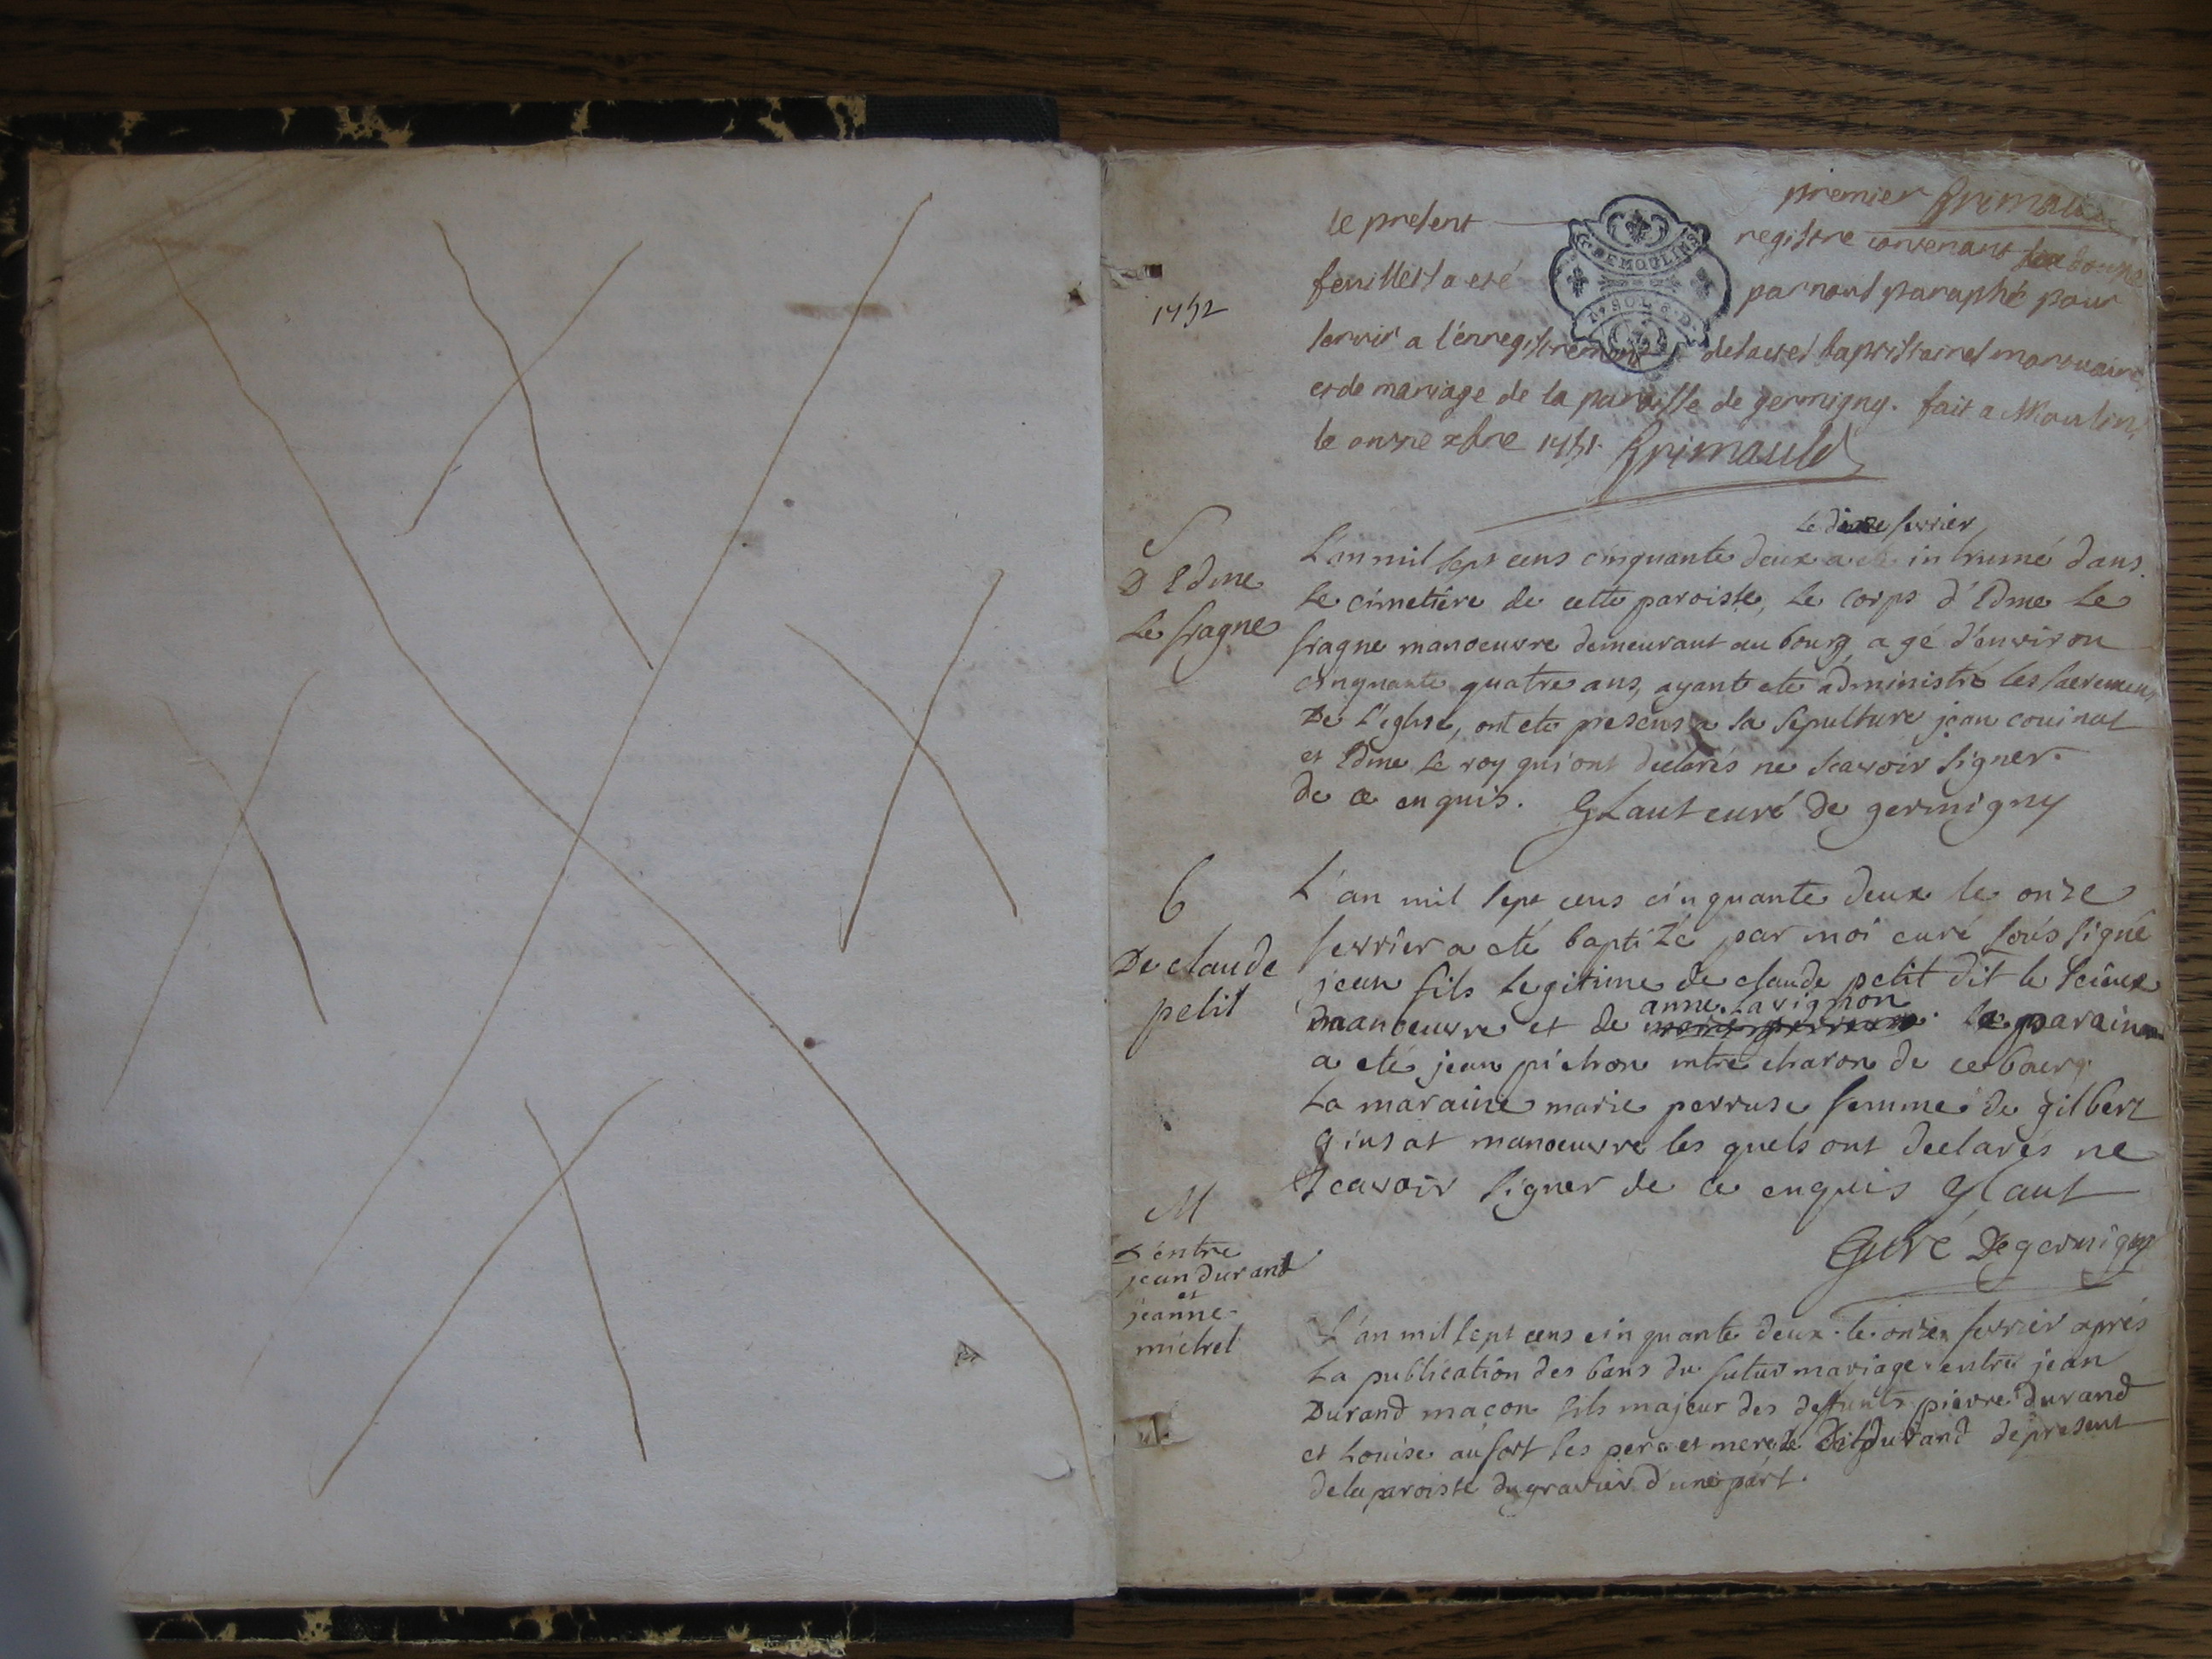 premier Grimauld
le present registre contenant
feuillets a eté par nous paraphé pour
servir a l'enregistrement des actes baptistaires mortuaires
et de mariage de la paroisse de germigny. fait a Moulins
le onze xbre 1751. Grimauld
G. DE MOULINS
SOL. 6. D.
1752
S
D Edme
Le fragne
Le dixe fevrier
L'an mil sept cens cinquante deux a eté inhumé dans
le cimetiere de cette paroisse, le corps d'Edme Le
fragne manoeuvre demeurant au bourg, agé d'environ
cinquante quatre ans, ayant eté administré les sacremens
De L'eglise, ont ete presens a la sepulture jean couinat
et Edme Le roy qui ont declarés ne scavoir signer.
de ce enquis. GLaut curé de germigny
B
De claude
petit
L'an mil sept cens cinquante deux le onze
fevrier a eté baptizé par moi curé sous signé
jean fils legitime de claude petit dit le
manoeuvre et de anne Lavignon. le parain
a eté jean pichon mtre charon de ce bourg
La maraine marie perruse femme de gilbert
ginsat manoeuvre les quels ont declarés ne
scavoir signer de ce enquis GLaut
Curé De germigny
M
D'entre
jean durand
et
jeanne
michel
L'an mil sept cens cinquante deux le onze fevrier après
La publication des bans du futur mariage entre jean
Durand maçon fils majeur des deffunts pierre durand
et Louise aufort ses pere et mere le dit durand de present
de la paroisse du gravier d'une part.